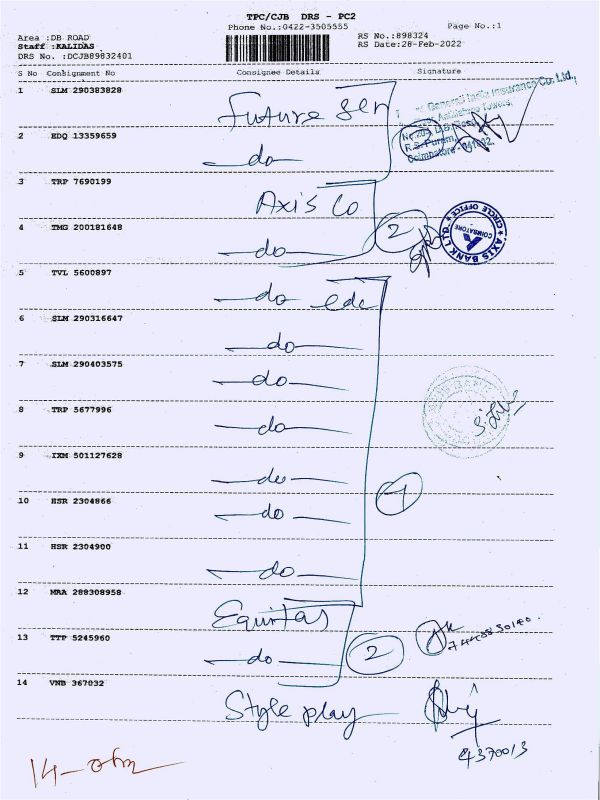 TPC/CJB DRS - PC2
Phone No.:0422-3505555
Page No.:1
Area :DB ROAD
Staff :KALIDAS
DRS No. :DCJB89832401
RS No.:898324
RS Date:28-Feb-2022
S No Consignment No Consignee Details Signature
1 SLM 290383828 Future Gen
General India Insurance Co. Ltd.,
R.S. Puram,
Coimbatore - 641002.
2 EDQ 13359659 do
3 TRP 7690199 Axis Co
4 TMG 200181648 do 2
AXIS BANK LTD
CIRCLE OFFICE
COIMBATORE
5 TVL 5600897 do
6 SLM 290316647 do
7 SLM 290403575 do
8 TRP 5677996 do
9 IXM 501127628 do
10 HSR 2304866 do
11 HSR 2304900 do
12 MRA 288308958 Equitas
13 TTP 5245960 do 2
14 VNB 367032 Style play
4370013